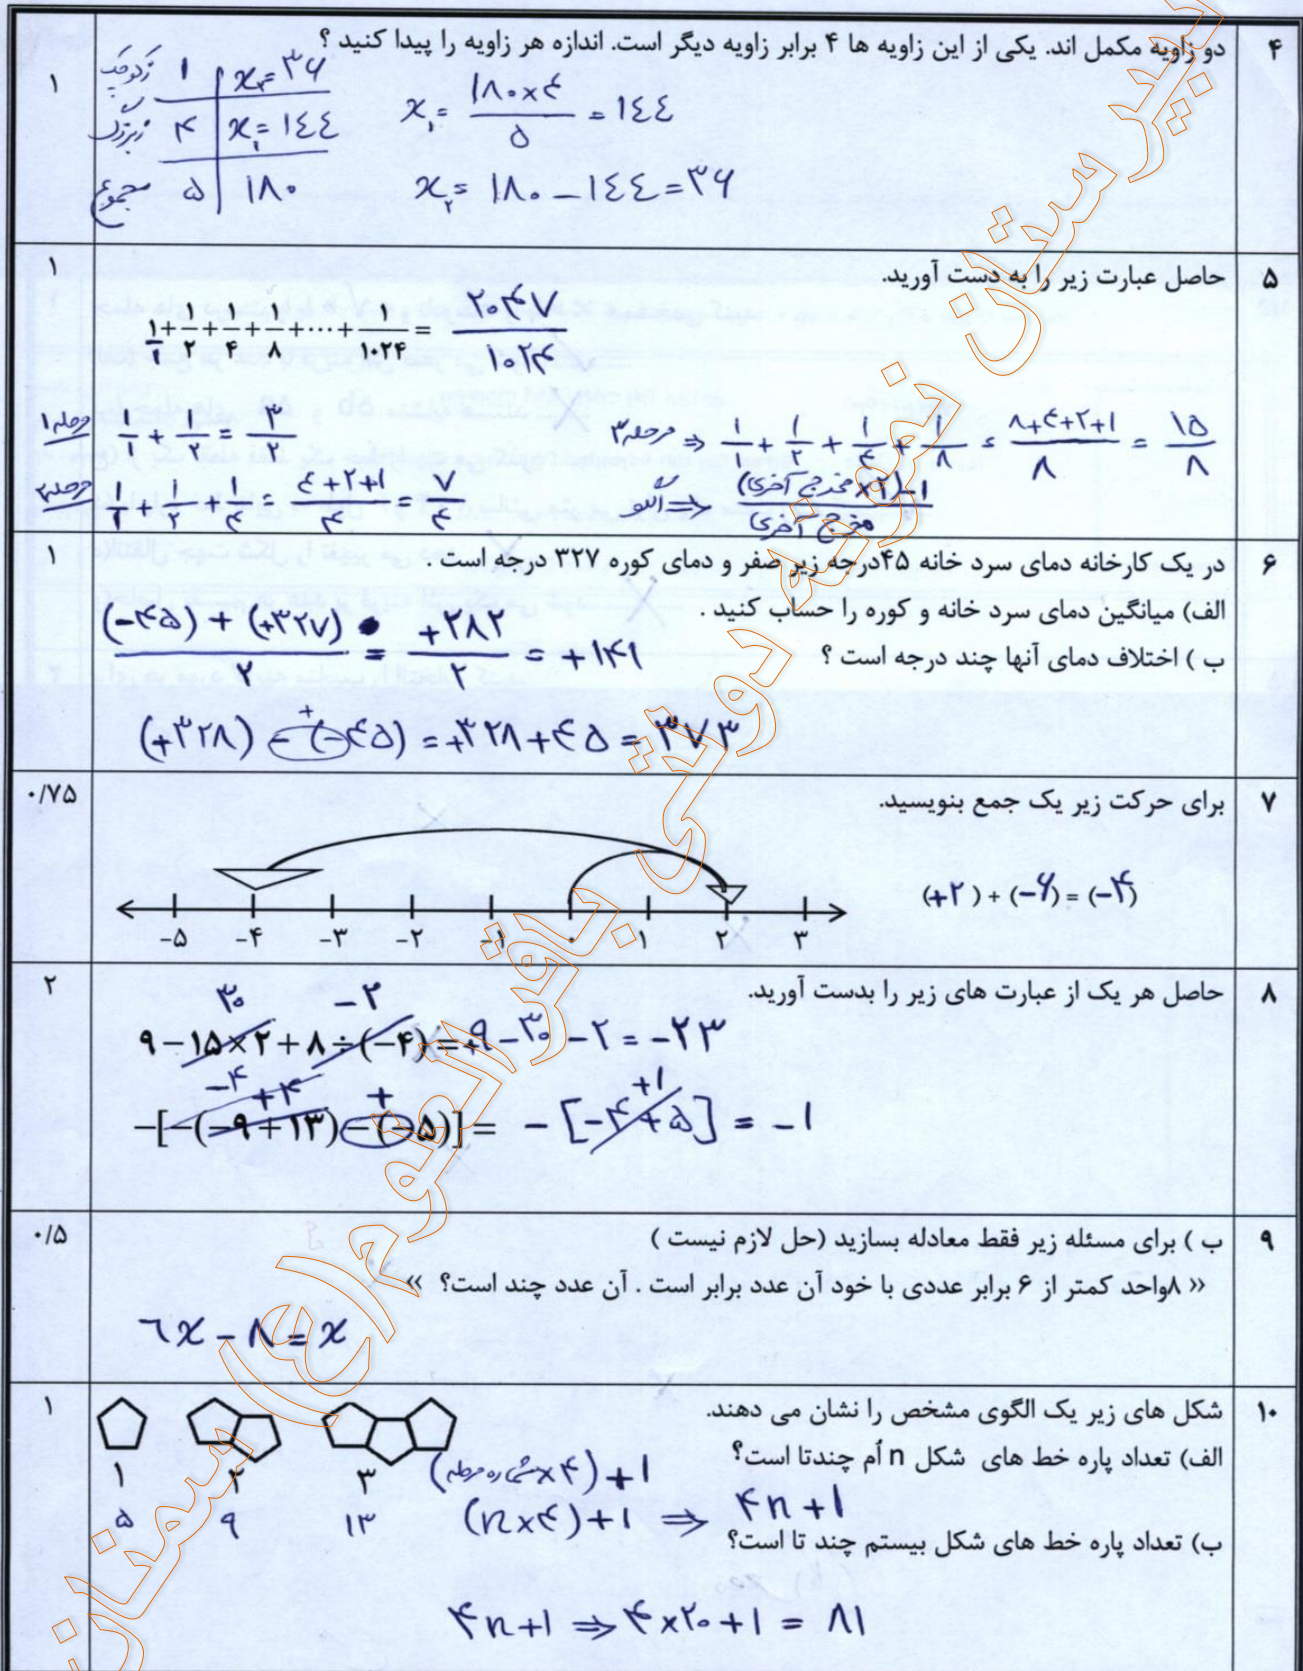 ۴ دو زاویه مکمل اند. یکی از این زاویه ها ۴ برابر زاویه دیگر است. اندازه هر زاویه را پیدا کنید ؟ ۱
ز کوچک ۱ x₂=۳۶
ز بزرگ ۴ x₁=۱۴۴
مجموع ۵ ۱۸۰
x₁= ۱۸۰×۴/۵ = ۱۴۴
x₂= ۱۸۰-۱۴۴=۳۶
۵ حاصل عبارت زیر را به دست آورید. ۱
۱/۱+۱/۲+۱/۴+۱/۸+⋯+۱/۱۰۲۴= ۲۰۴۷/۱۰۲۴
مرحله ۱ ۱/۱ + ۱/۲ = ۳/۲
مرحله ۲ ۱/۱ + ۱/۲ + ۱/۴ = ۴+۲+۱/۴ = ۷/۴
مرحله ۳ ⇒ ۱/۱ + ۱/۲ + ۱/۴ + ۱/۸ = ۸+۴+۲+۱/۸ = ۱۵/۸
الگو ⇒ (مخرج آخری×۲)-۱/(مخرج آخری)
۶ در یک کارخانه دمای سرد خانه ۴۵درجه زیر صفر و دمای کوره ۳۲۷ درجه است . ۱
الف) میانگین دمای سرد خانه و کوره را حساب کنید .
ب ) اختلاف دمای آنها چند درجه است ؟
(-۴۵) + (+۳۲۷)/۲ = +۲۸۲/۲ = +۱۴۱
(+۳۲۸) - (-۴۵) = +۳۲۸+۴۵ = ۳۷۳
۷ برای حرکت زیر یک جمع بنویسید. ۰/۷۵
(+۲) + (-۶) = (-۴)
-۵ -۴ -۳ -۲ -۱ ۰ ۱ ۲ ۳
۸ حاصل هر یک از عبارت های زیر را بدست آورید. ۲
۳۰ -۲
۹-۱۵×۲+۸÷(-۴)=+۹-۳۰-۲=-۲۳
-۴ +۴ + +۱
-[-(-۹+۱۳)-(-۵)]= -[-۴+۵] = -۱
۹ ب ) برای مسئله زیر فقط معادله بسازید (حل لازم نیست ) ۰/۵
« ۸واحد کمتر از ۶ برابر عددی با خود آن عدد برابر است . آن عدد چند است؟ »
۶x - ۸ = x
۱۰ شکل های زیر یک الگوی مشخص را نشان می دهند. ۱
الف) تعداد پاره خط های شکل n اُم چندتا است؟
۱ ۲ ۳
(شماره مرحله×۴)+۱
۵ ۹ ۱۳
(n×۴)+۱ ⇒ ۴n+۱
ب) تعداد پاره خط های شکل بیستم چند تا است؟
۴n+۱ ⇒ ۴×۲۰+۱ = ۸۱
دبیرستان نمونه دولتی باقرالعلوم(ع) سمنان